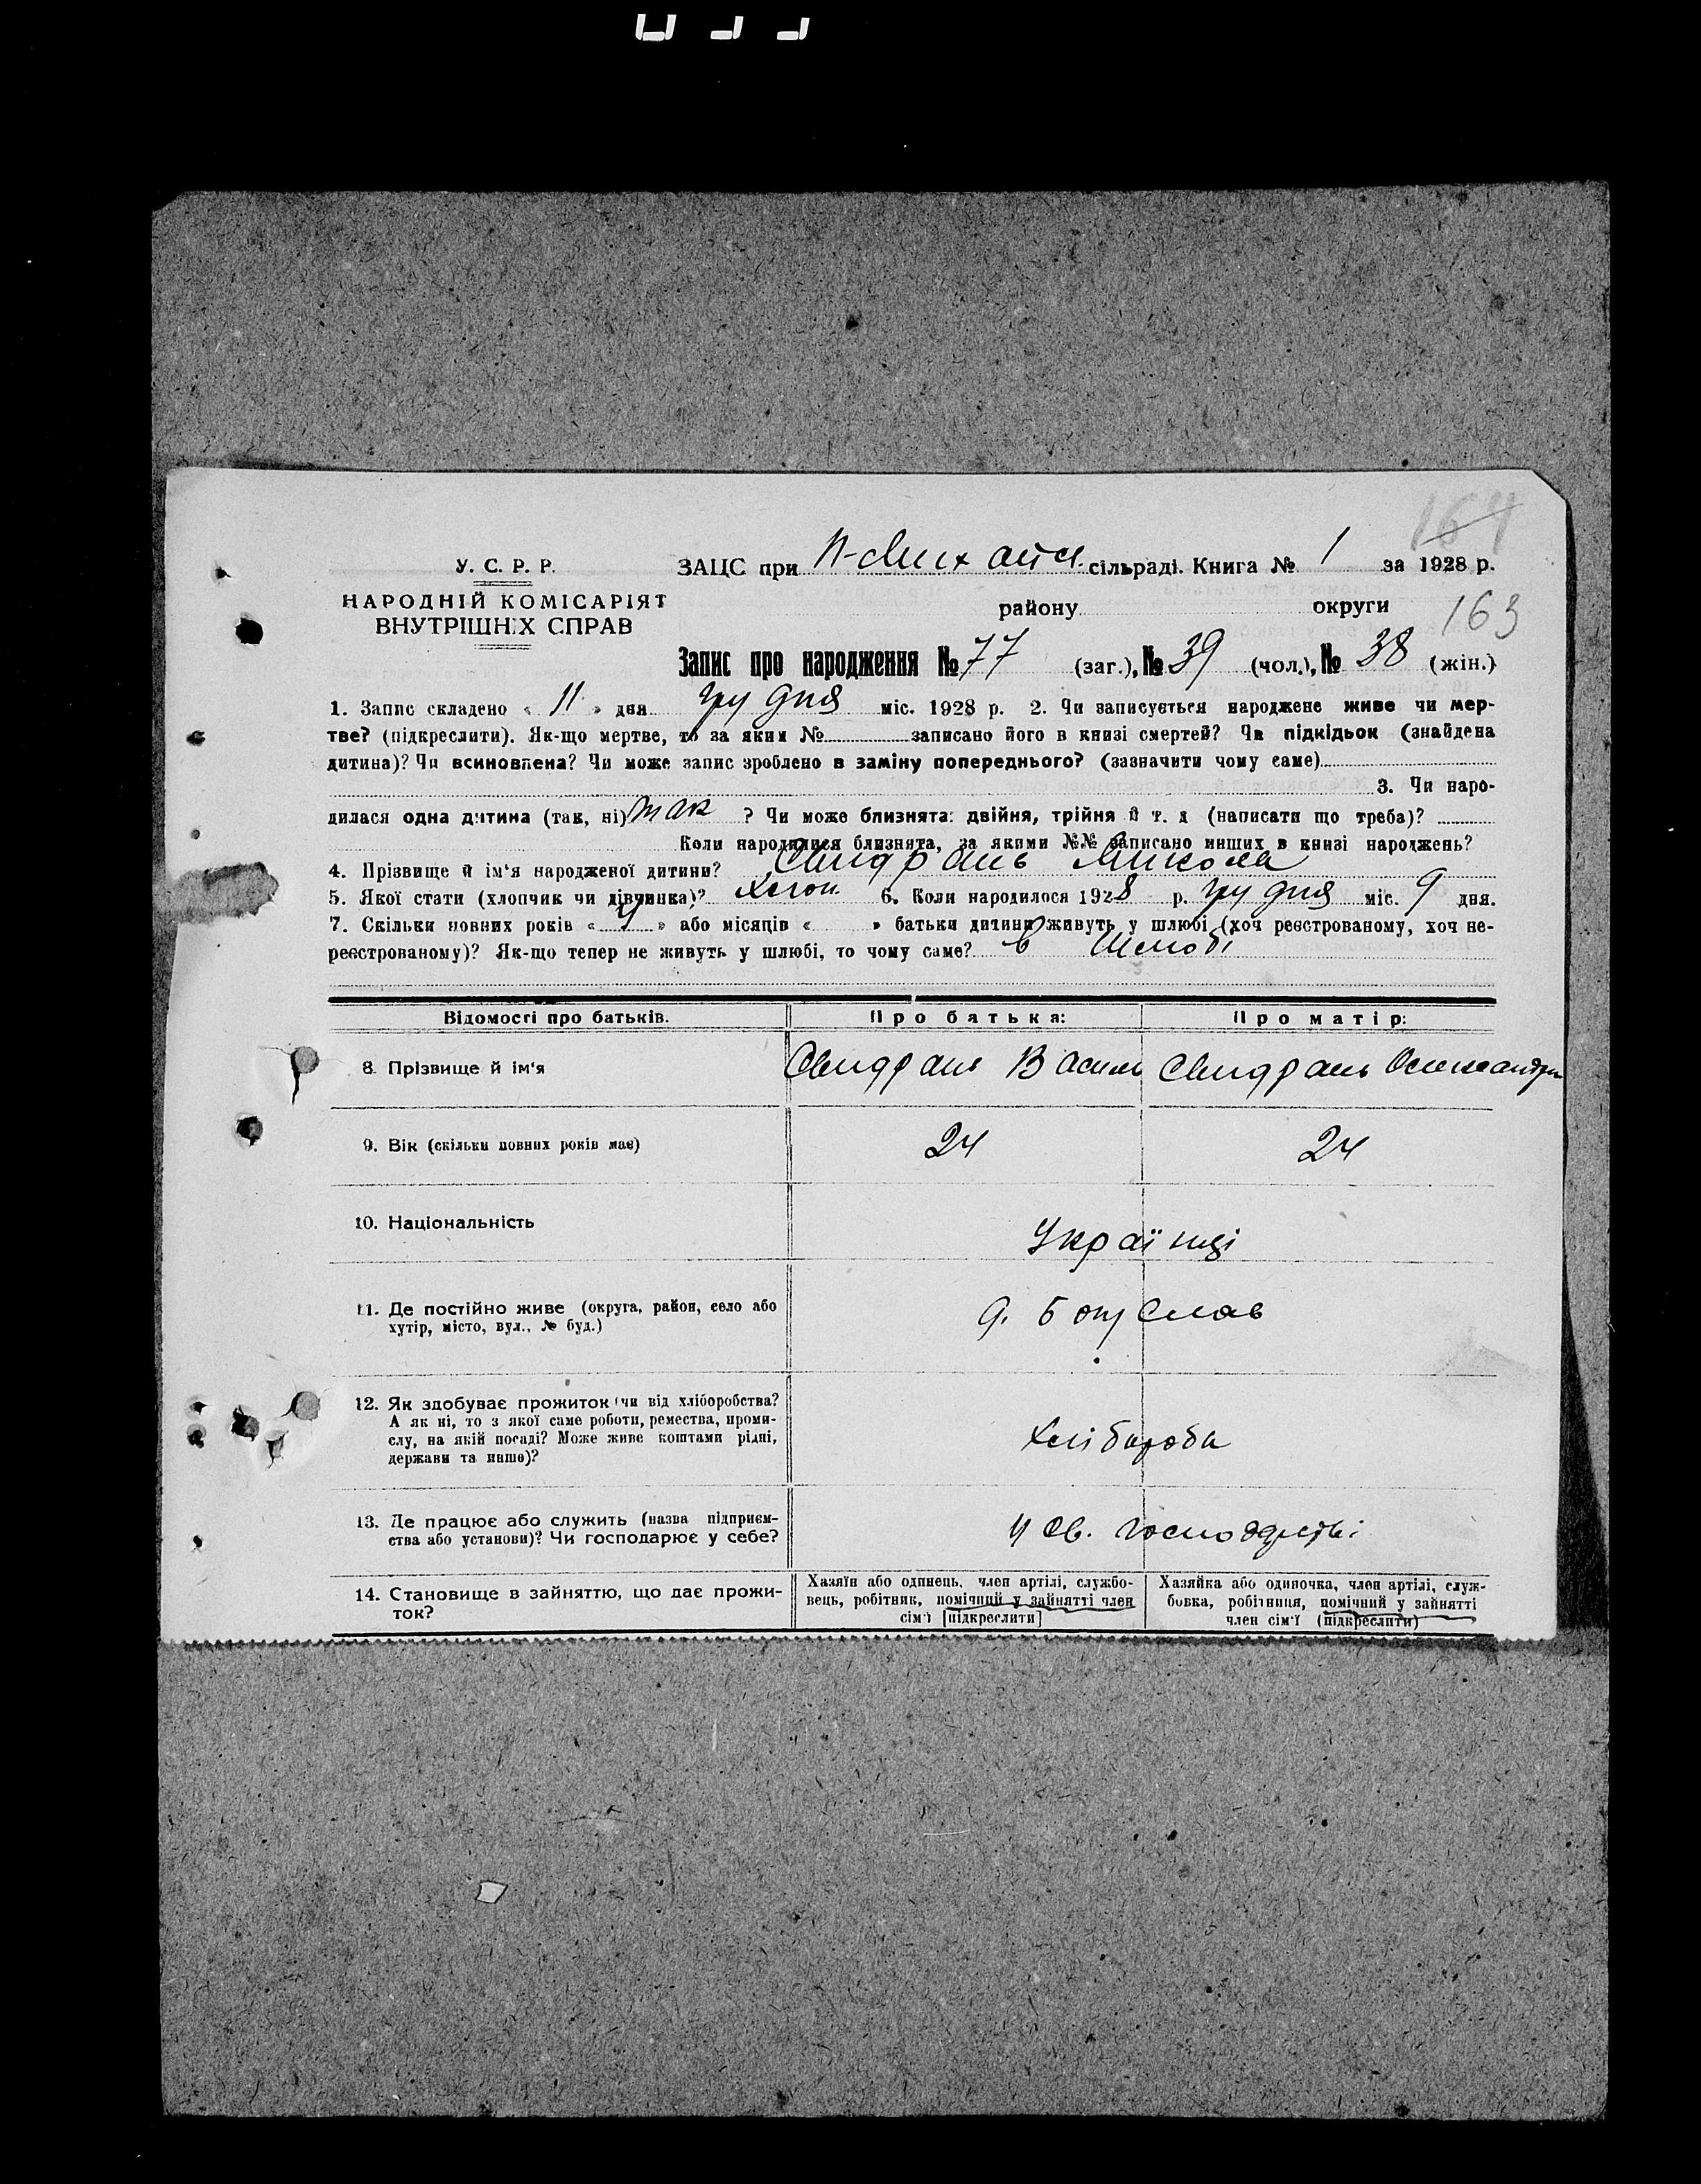 164
У. С. Р. Р.
НАРОДНІЙ КОМІСАРІЯТ
ВНУТРІШНІХ СПРАВ
ЗАЦС при Н-Михайл. сільраді. Книга № 1 за 1928 р.
району округи
163
Запис про народження № 77 (заг.), № 39 (чол.), № 38 (жін.)
1. Запис складено « 11 » дня грудня міс. 1928 р. 2. Чи записується народжене живе чи мер-
тве? (підкреслити). Як-що мертве, то за яким № записано його в книзі смертей? Чи підкідьок (знайдена
дитина)? Чи всиновлена? Чи може запис зроблено в заміну попереднього? (зазначити чому саме)
3. Чи наро-
дилася одна дитина (так, ні) так ? Чи може близнята: двійня, трійня й т. д (написати що треба)?
Коли народилися близнята, за якими №№ записано инших в книзі народжень?
4. Прізвище й ім'я народженої дитини? Свидрань Микола
5. Якої стати (хлопчик чи дівчинка)? Хлоп. 6. Коли народилося 1928 р. грудня міс. 9 дня.
7. Скільки повних років « » або місяців « » батьки дитини живуть у шлюбі (хоч реєстрованому, хоч не-
реєстрованому)? Як-що тепер не живуть у шлюбі, то чому саме? в Шлюбі
Відомості про батьків. Про батька: Про матір:
8. Прізвище й ім'я Свидрань Василь Свидрань Олександра
9. Вік (скільки повних років має) 24 24
10. Національність Українці
11. Де постійно живе (округа, район, село або
хутір, місто, вул., № буд.)
Богуслав
12. Як здобуває прожиток (чи від хліборобства?
А як ні, то з якої саме роботи, ремества, проми-
слу, на якій посаді? Може живе коштами рідні,
держави та инше)?
Хлібороби
13. Де працює або служить (назва підприєм-
ства або установи)? Чи господарює у себе?
У св. господарстві
14. Становище в зайняттю, що дає прожи-
ток?
Хазяїн або одинець, член артілі, службо-
вець, робітник, помічний у зайнятті член
сім'ї [підкреслити]
Хазяйка або одиночка, член артілі, служ-
бовка, робітниця, помічний у зайнятті
член сім'ї (підкреслити)